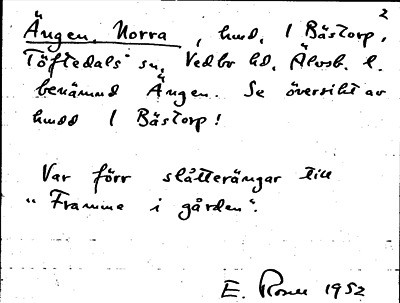 2
Ängen, Norra, hmd, 1 Bästorp,
Töftedals sn, Vedbo hd, Älvsb. l.
benämnd Ängen. Se översikt av
hmdd 1 Bästorp!
Var förr slåtterängar till
"Framme i gården".
E. 1952